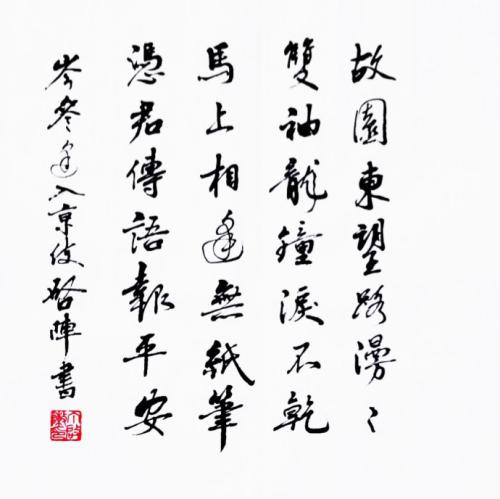 故園東望路漫〻
雙袖龍鐘淚不乾
馬上相逢無紙筆
憑君傳語報平安
岑參逢入京使 啓陣書